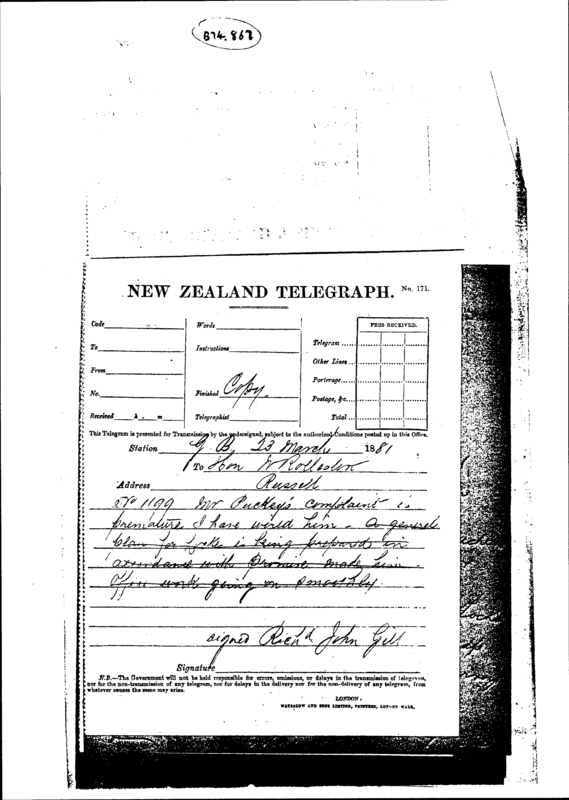 B74.862
NEW ZEALAND TELEGRAPH. No. 171.
FEES RECEIVED.
Code
Words
Telegram
To
Instructions
Other Lines
From
Porterage
No.
Finished Copy.
Postage, &c.
Received h. m
Telegraphist
Total
This Telegram is presented for Transmission by the undersigned, subject to the authorized Conditions posted up in this Office.
Station G. B, 23 March 1881
To Hon W Rolleston
Address Russell
No 1199 Mr Puckey's complaint is
premature I have wired him - A general
plan for is being prepared in
with promise made him.
work going on smoothly.
signed Rich'd John Gill
Signature
N.B.—The Government will not be held responsible for errors, omissions, or delays in the transmission of telegrams,
nor for the non-transmission of any telegram, nor for delays in the delivery nor for the non-delivery of any telegram, from
whatever causes the same may arise.
LONDON:
WATERLOW AND SONS LIMITED, PRINTERS, LONDON WALL.